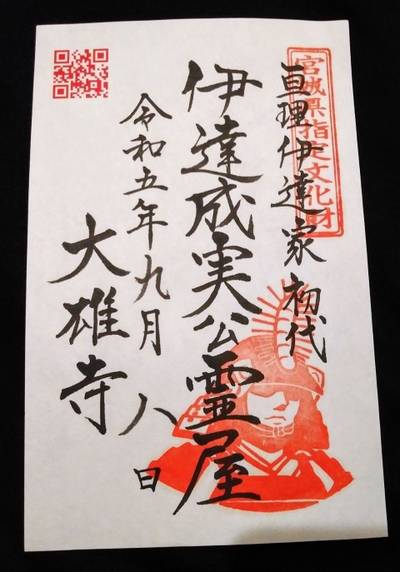 宮城県指定文化財
亘理伊達家初代
伊達成実公霊屋
令和五年九月八日
大雄寺